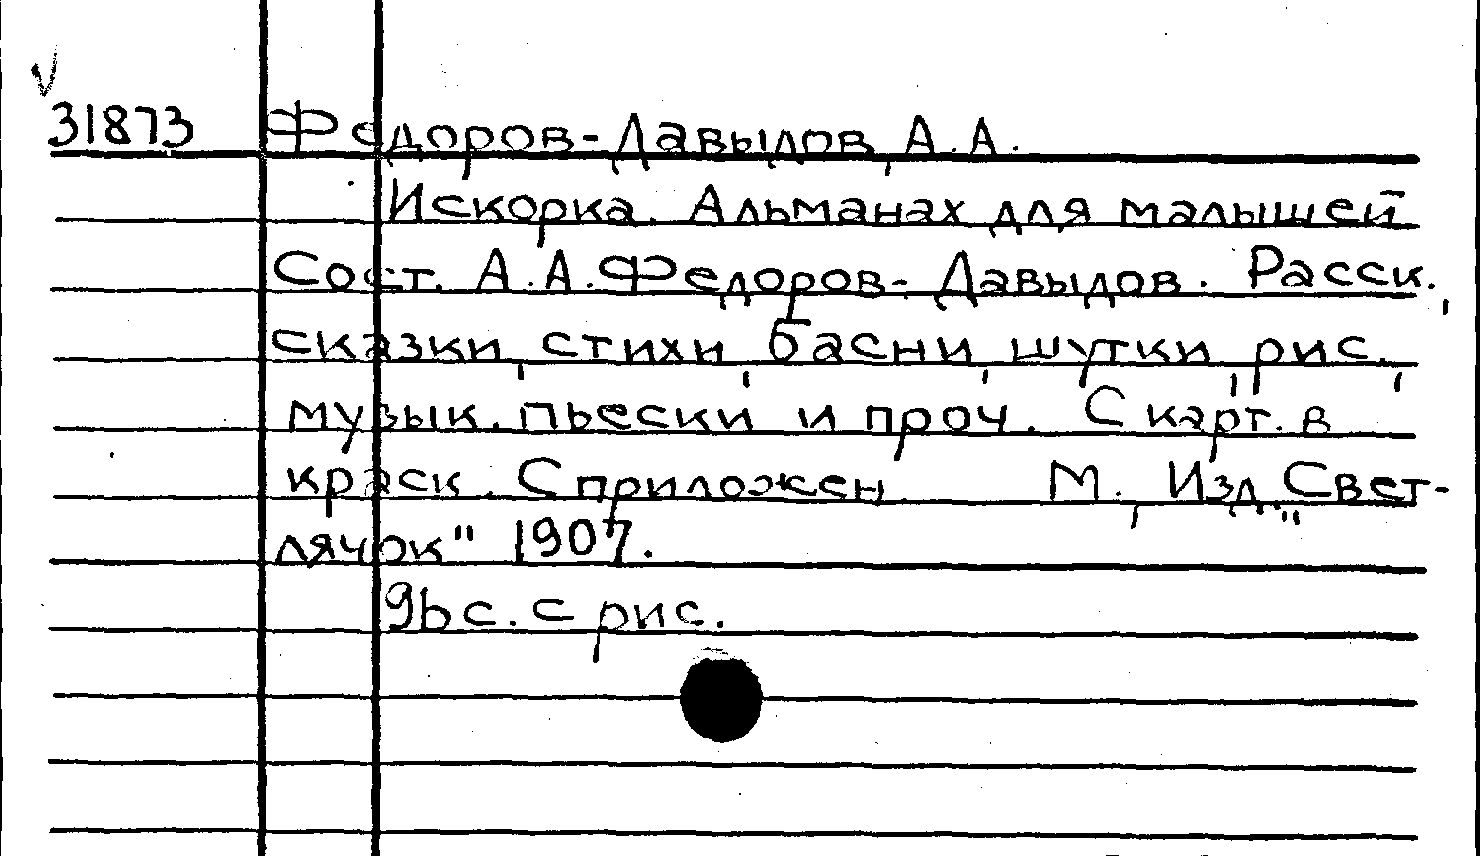 31873 Федоров-Давыдов, А.А.
Искорка. Альманах для малышей
Сост. А.А.Федоров-Давыдов. Расск.,
сказки, стихи, басни, шутки, рис.,
музык. пьески и проч. С карт. в
краск. С приложен. М., Изд. „Свет-
лячок" 1907.
96 с. с рис.